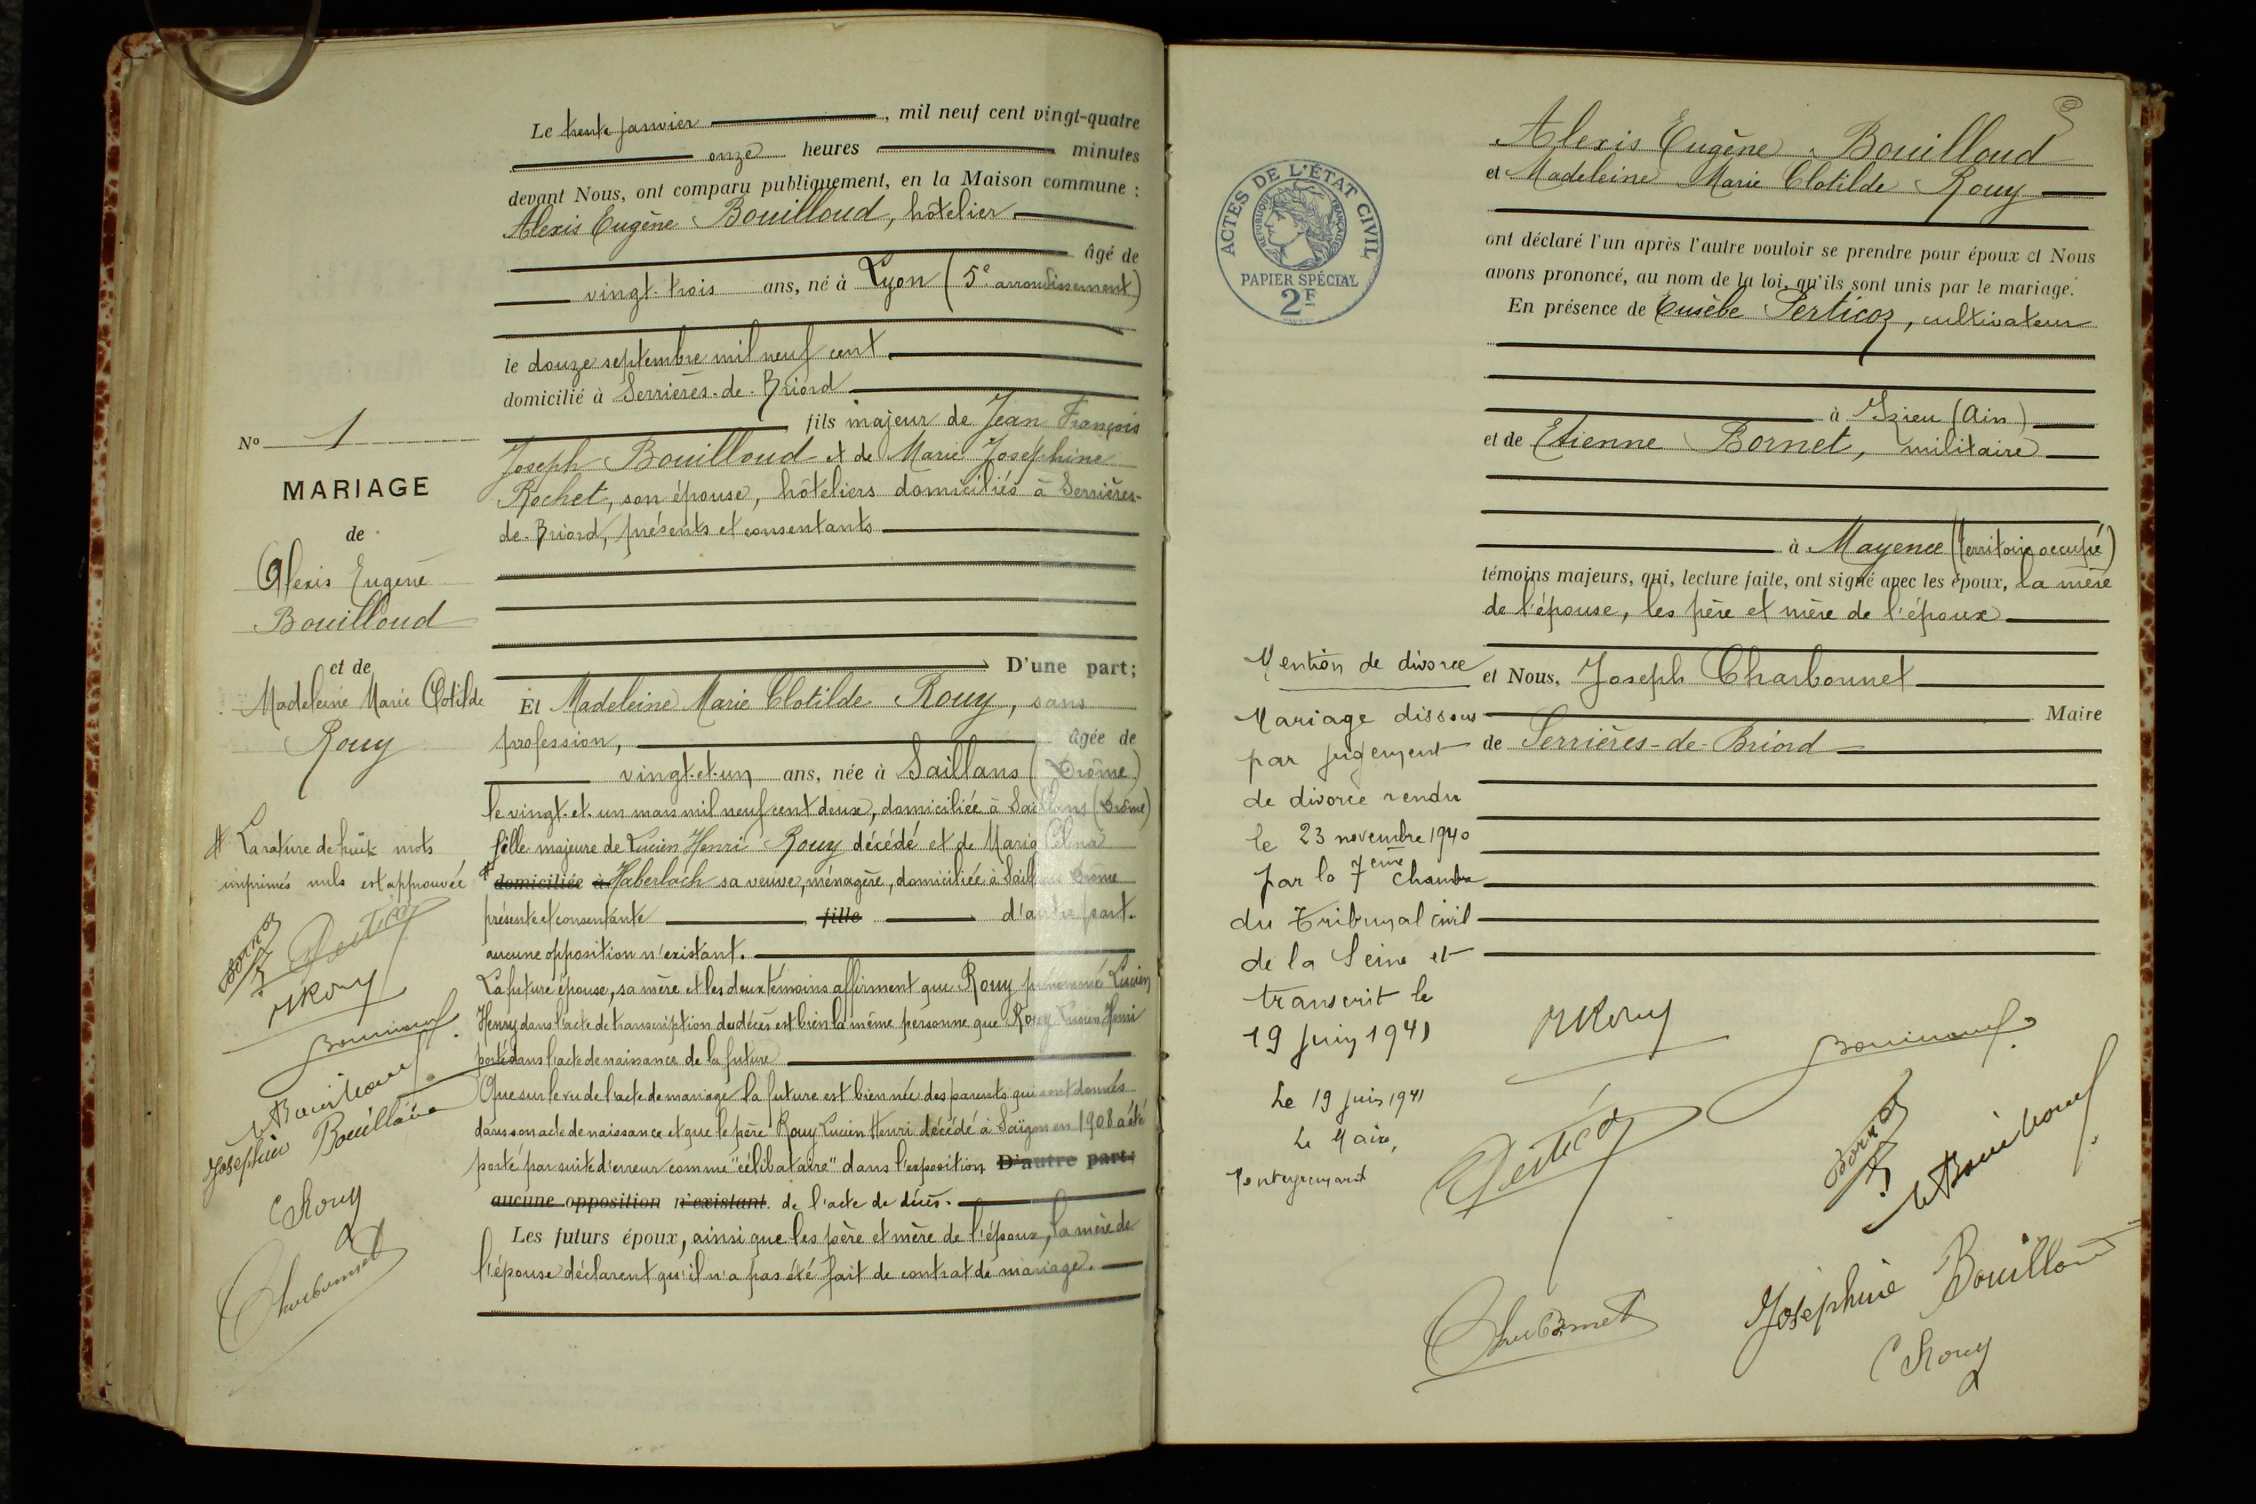 Le trente janvier, mil neuf cent vingt-quatre
onze heures minutes
devant Nous, ont comparu publiquement, en la Maison commune :
Alexis Eugène Bouilloud, hôtelier
âgé de
vingt-trois ans, né à Lyon (5e arrondissement)
le douze septembre mil neuf cent
domicilié à Serrières-de-Briord
fils majeur de Jean François
Joseph Bouilloud et de Marie Joséphine
Rochet, son épouse, hôteliers domiciliés à Serrières-
de-Briord, présents et consentants
D'une part;
Et Madeleine Marie Clotilde Rouy, sans
profession, âgée de
vingt-et-un ans, née à Saillans (Drôme)
le vingt-et-un mars mil neuf cent deux, domiciliée à Saillans (Drôme)
fille majeure de Lucien Henri Rouy décédé et de Marie Célina
# domiciliée à Haberlach sa veuve, ménagère, domiciliée à Saillans Drôme
présente et consentante fille d'autre part.
aucune opposition n'existant.
La future épouse, sa mère et les deux témoins affirment que Rouy prénommé Lucien
Henry dans l'acte de transcription du décès est bien la même personne que Rouy Lucien Henri
porté dans l'acte de naissance de la future
Que sur le vu de l'acte de mariage la future est bien née des parents qui sont donnés
dans son acte de naissance et que le père Rouy Lucien Henri décédé à Saïgon en 1908 a été
porté par suite d'erreur comme "célibataire" dans l'exposition D'autre part;
aucune opposition n'existant. de l'acte de décès.
Les futurs époux, ainsi que les père et mère de l'époux, la mère de
l'épouse déclarent qu'il n'a pas été fait de contrat de mariage.
No 1
MARIAGE
de
Alexis Eugène
Bouilloud
et de
Madeleine Marie Clotilde
Rouy
# La rature de huit mots
imprimés nuls est approuvée
MRouy
Joséphine Bouilloud
CRouy
Charbonnet
Alexis Eugène Bouilloud
et Madeleine Marie Clotilde Rouy
ont déclaré l'un après l'autre vouloir se prendre pour époux et Nous
avons prononcé, au nom de la loi, qu'ils sont unis par le mariage.
En présence de Eusèbe Perticoz, cultivateur
à Izieu (Ain)
et de Etienne Bornet, militaire
à Mayence (Territoire occupé)
témoins majeurs, qui, lecture faite, ont signé avec les époux, la mère
de l'épouse, les père et mère de l'époux
et Nous, Joseph Charbonnet
Maire
de Serrières-de-Briord
ACTES DE L'ÉTAT CIVIL
RÉPUBLIQUE FRANÇAISE
PAPIER SPÉCIAL
2F
Mention de divorce
Mariage dissous
par jugement
de divorce rendu
le 23 novembre 1940
par la 7ème Chambre
du Tribunal civil
de la Seine et
transcrit le
19 juin 1941
Le 19 juin 1941
Le Maire,
MRouy
Charbonnet
Joséphine Bouilloud
CRouy